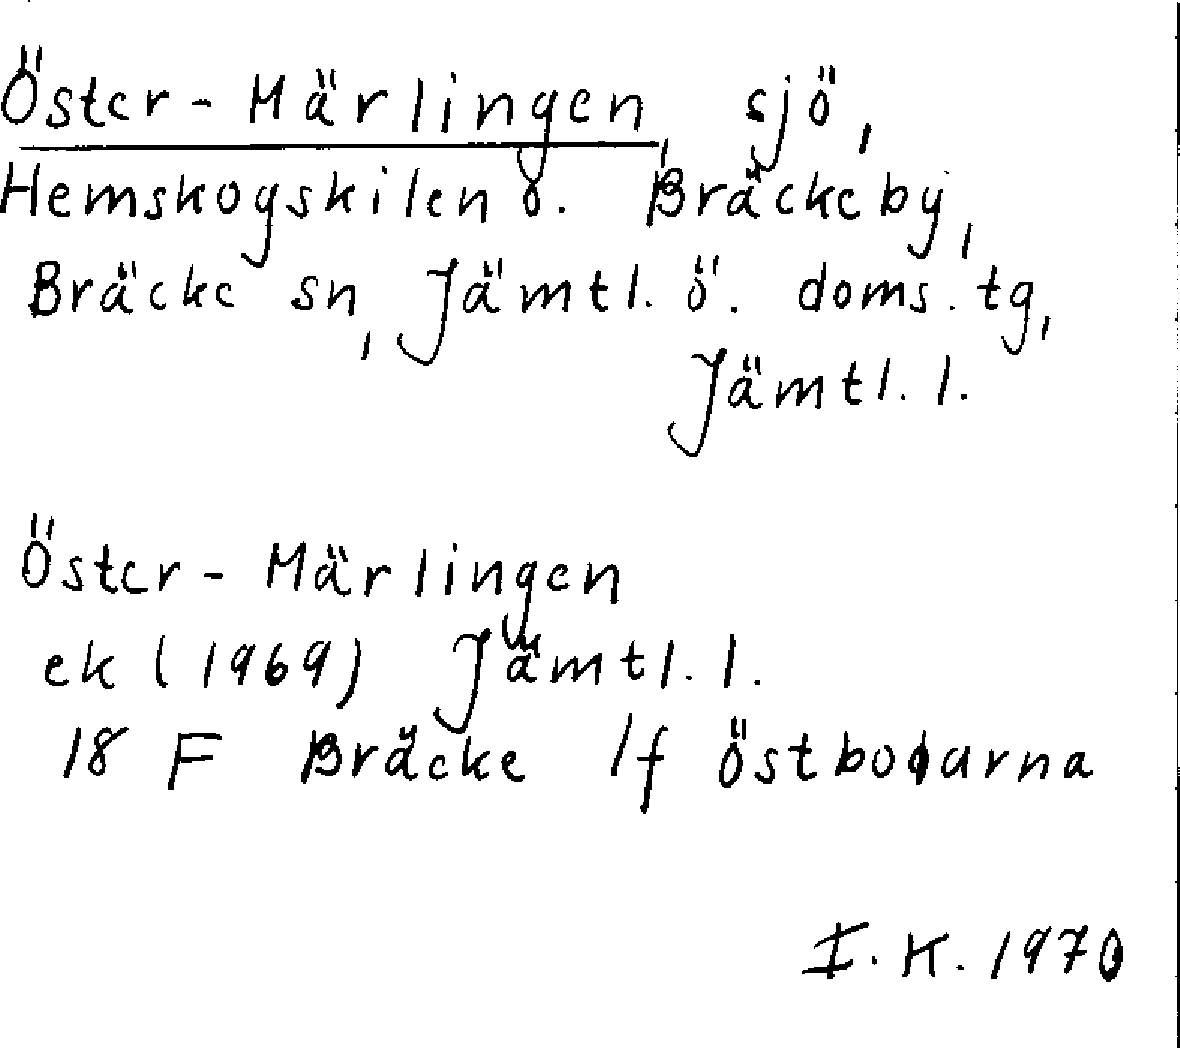 Öster-Märlingen, sjö,
Hemskogskilen ö. Bräcke by,
Bräcke sn, Jämtl. ö. doms. tg,
Jämtl. l.
Öster-Märlingen
ek (1969) Jämtl. l.
18 F Bräcke /f östbodarna
I. K. 1970